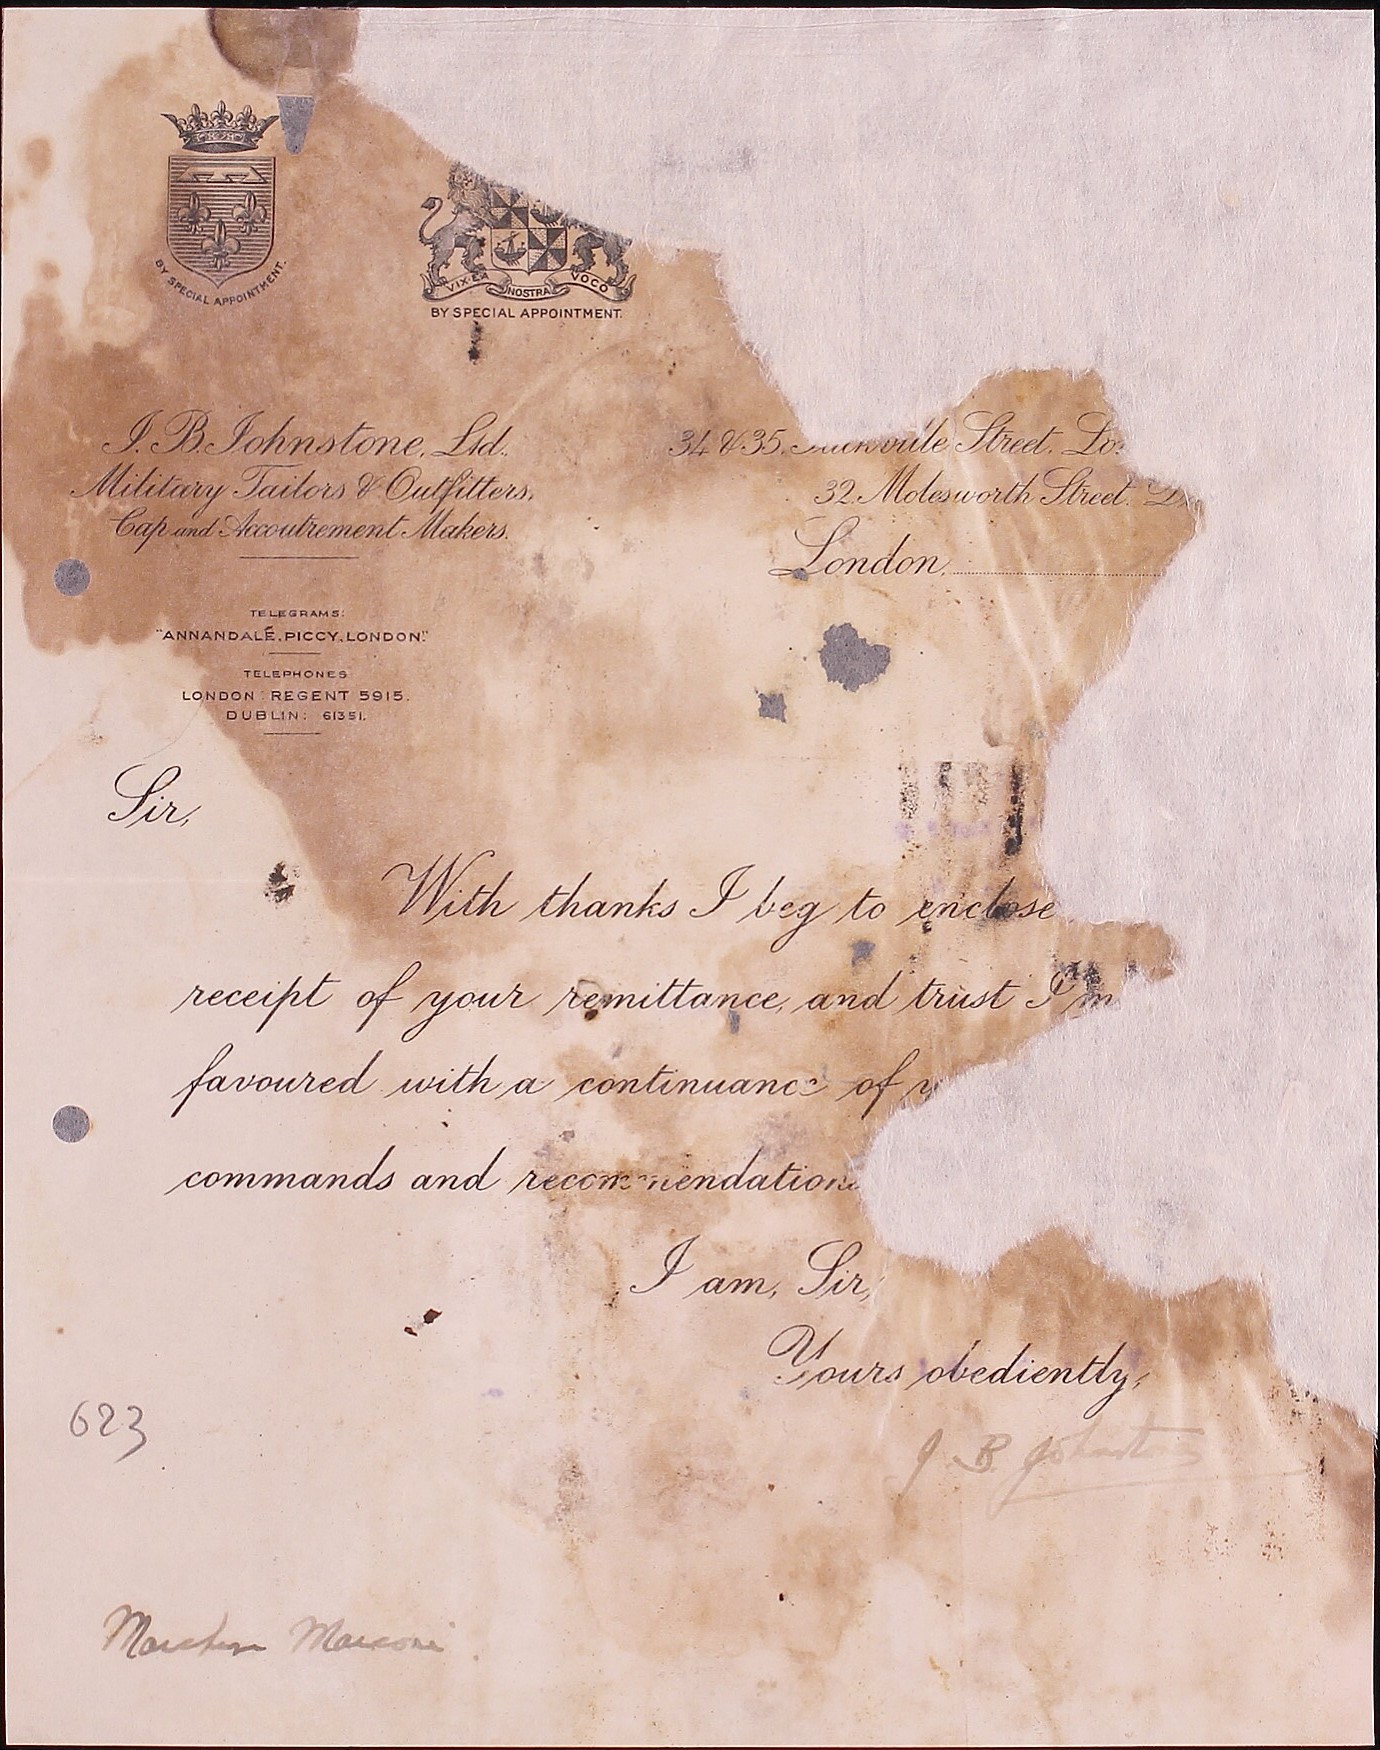 BY SPECIAL APPOINTMENT.
VIX·EA NOSTRA VOCO
BY SPECIAL APPOINTMENT.
J. B. Johnstone, Ltd.
Military Tailors & Outfitters,
Cap and Accoutrement Makers.
34 & 35, Street, Lo
32, Molesworth Street. D
London,
TELEGRAMS:
"ANNANDALE, PICCY, LONDON."
TELEPHONES
LONDON : REGENT 5915.
DUBLIN: 61351.
Sir,
With thanks I beg to enclose
receipt of your remittance, and trust I m
favoured with a continuance of y
commands and recommendation
I am, Sir,
Yours obediently,
J B Johnstone
623
Marchese Marconi